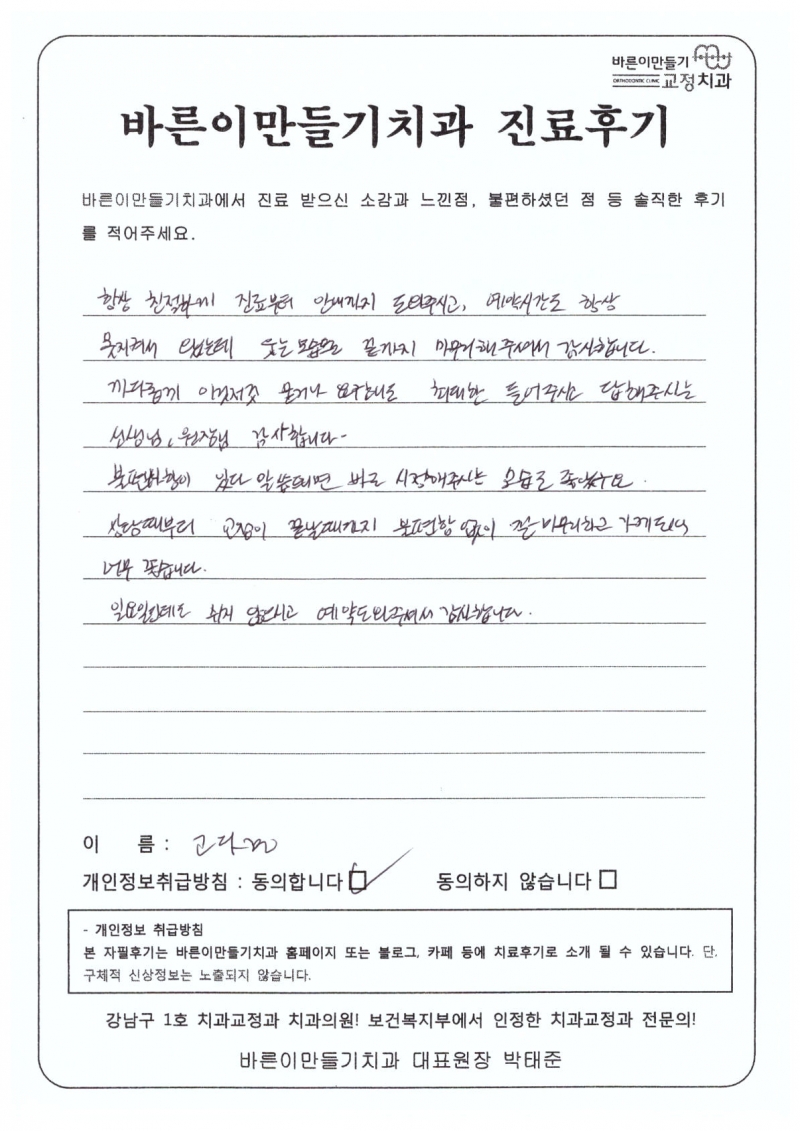 바른이만들기
ORTHODONTIC CLINIC 교정치과
바른이만들기치과 진료후기
바른이만들기치과에서 진료 받으신 소감과 느낀점, 불편하셨던 점 등 솔직한 후기
를 적어주세요.
항상 친절하게 진료부터 안내까지 도와주시고, 예약시간도 항상
못지켜서 웃는모습으로 끝까지 마무리해주셔서 감사합니다.
까다롭게 이것저것 묻거나 요구해도 최대한 들어주시고 답해주시는
선생님, 원장님 감사합니다-
불편사항이 있다 말씀드리면 바로 시정해주시는 모습도 좋았구요.
상담때부터 교정이 끝날때까지 불편함 없이 잘 마무리하고 가게되어
너무 좋습니다.
일요일인데도 쉬지 않으시고 예약도와주셔서 감사합니다.
이 름 :
개인정보취급방침 : 동의합니다 동의하지 않습니다
- 개인정보 취급방침
본 자필후기는 바른이만들기치과 홈페이지 또는 블로그, 카페 등에 치료후기로 소개 될 수 있습니다. 단,
구체적 신상정보는 노출되지 않습니다.
강남구 1호 치과교정과 치과의원! 보건복지부에서 인정한 치과교정과 전문의!
바른이만들기치과 대표원장 박태준